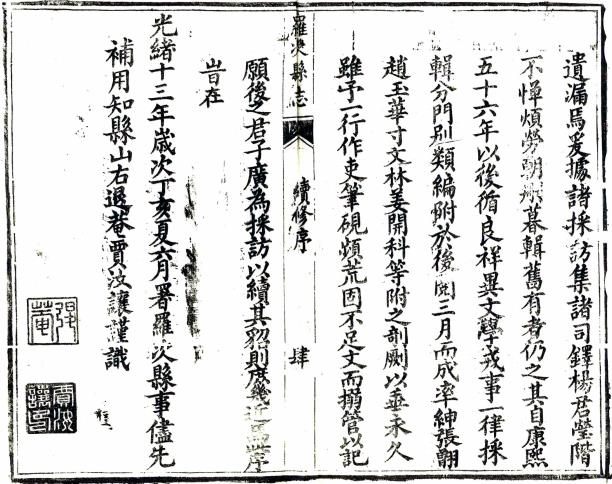 遺漏焉爰據諸採訪集諸司鐸楊君瑩階
不憚煩勞朝蒐暮輯舊有者仍之其自康熙
五十六年以後循良祥異文學戎事一律採
輯分門別類編附於後閱三月而成率紳張翮
趙玉華寸文林姜開科等附之剞劂以垂永久
雖予一行作吏筆硯頻荒固不足文而搦管以記
羅次縣志
續修序
肆
願後之君子廣為採訪以續其貂則庶幾近焉序
旹在
光緒十三年歲次丁亥夏六月署羅次縣事儘先
補用知縣山右退菴賈汝讓謹識